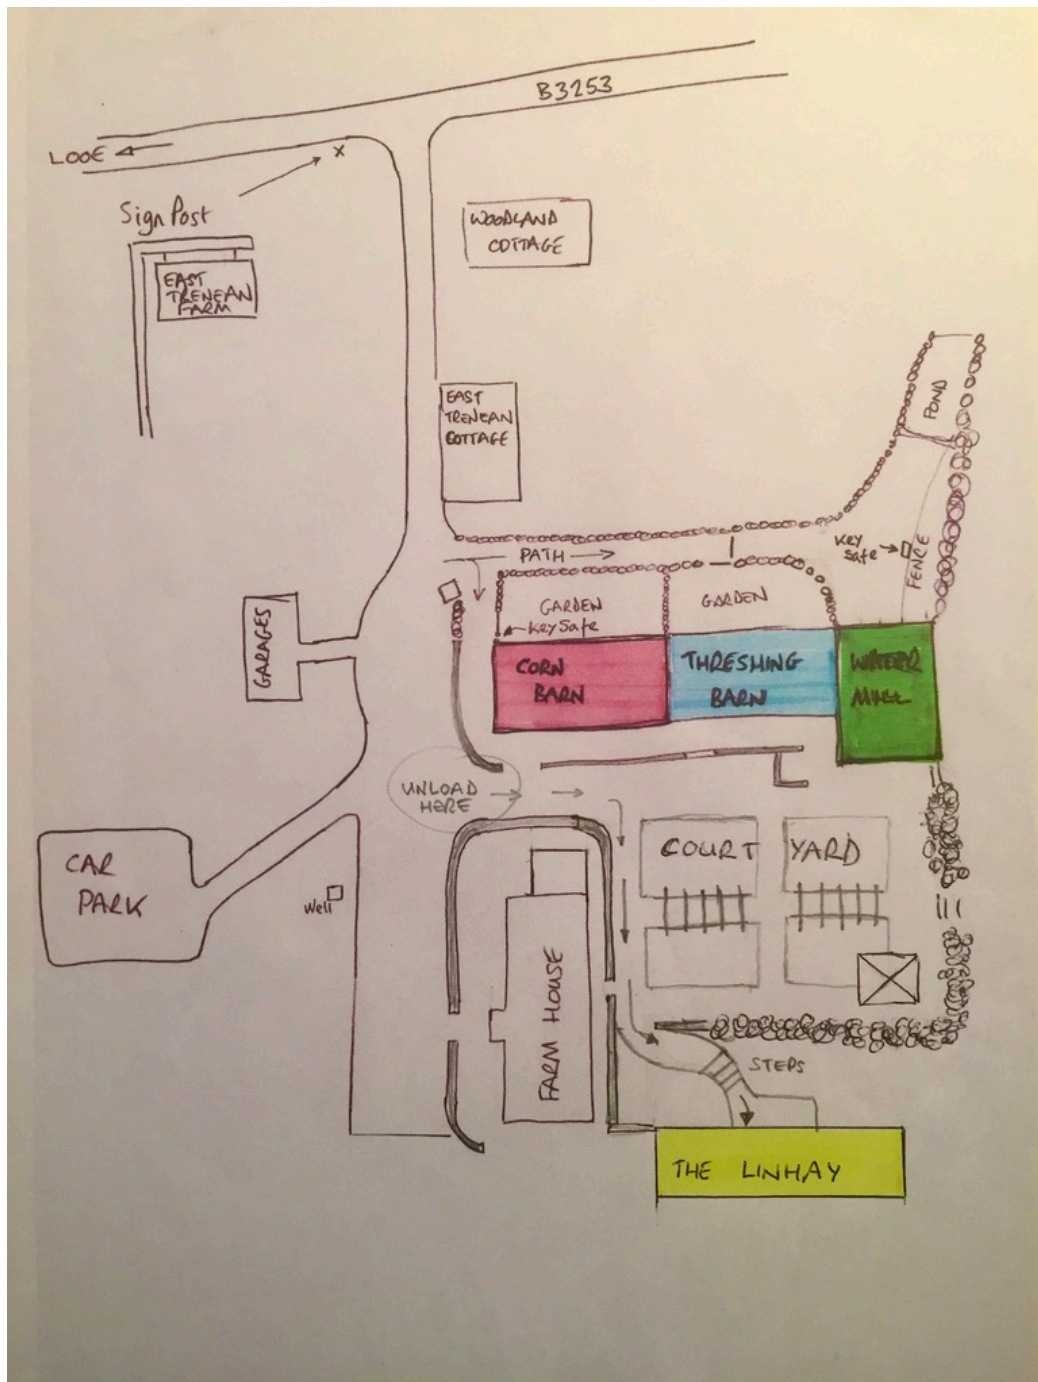 B3253
LOOE
x
Sign Post
EAST
TRENEAN
FARM
WOODLAND
COTTAGE
EAST
TRENEAN
COTTAGE
POND
PATH
Key
Safe
FENCE
GARDEN
GARDEN
Key Safe
GARAGES
CORN
BARN
THRESHING
BARN
WATER
MILL
UNLOAD
HERE
COURT YARD
CAR
PARK
Well
FARM HOUSE
STEPS
THE LINHAY